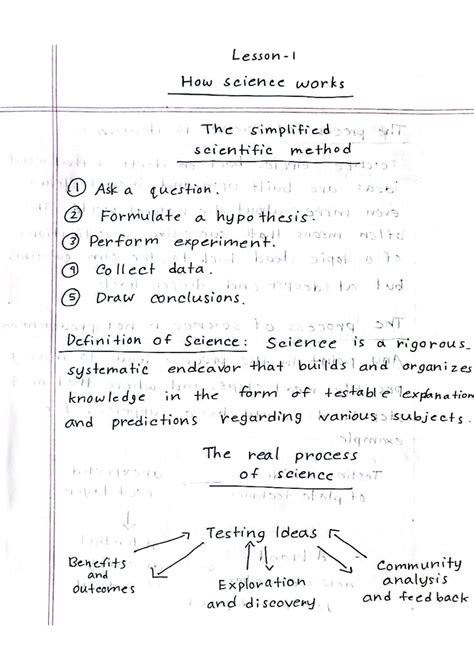 Lesson-1
How science works
The simplified
scientific method
① Ask a question.
② Formulate a hypothesis.
③ Perform experiment.
④ Collect data.
⑤ Draw conclusions.
Definition of Science: Science is a rigorous
systematic endeavor that builds and organizes
knowledge in the form of testable explanation
and predictions regarding various subjects.
The real process
of science
Testing Ideas
Benefits
and
outcomes
Exploration
and discovery
Community
analysis
and feedback